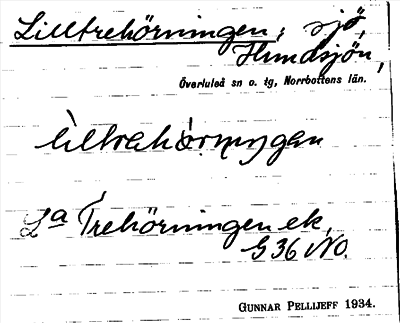 Lilltrehörningen, sjö,
Hundsjön,
Överluleå sn o. tg, Norrbottens län.
lìltrehö̀rnıŋgen
La Trehörningen ek.
G 36 NO.
GUNNAR PELLIJEFF 1934.